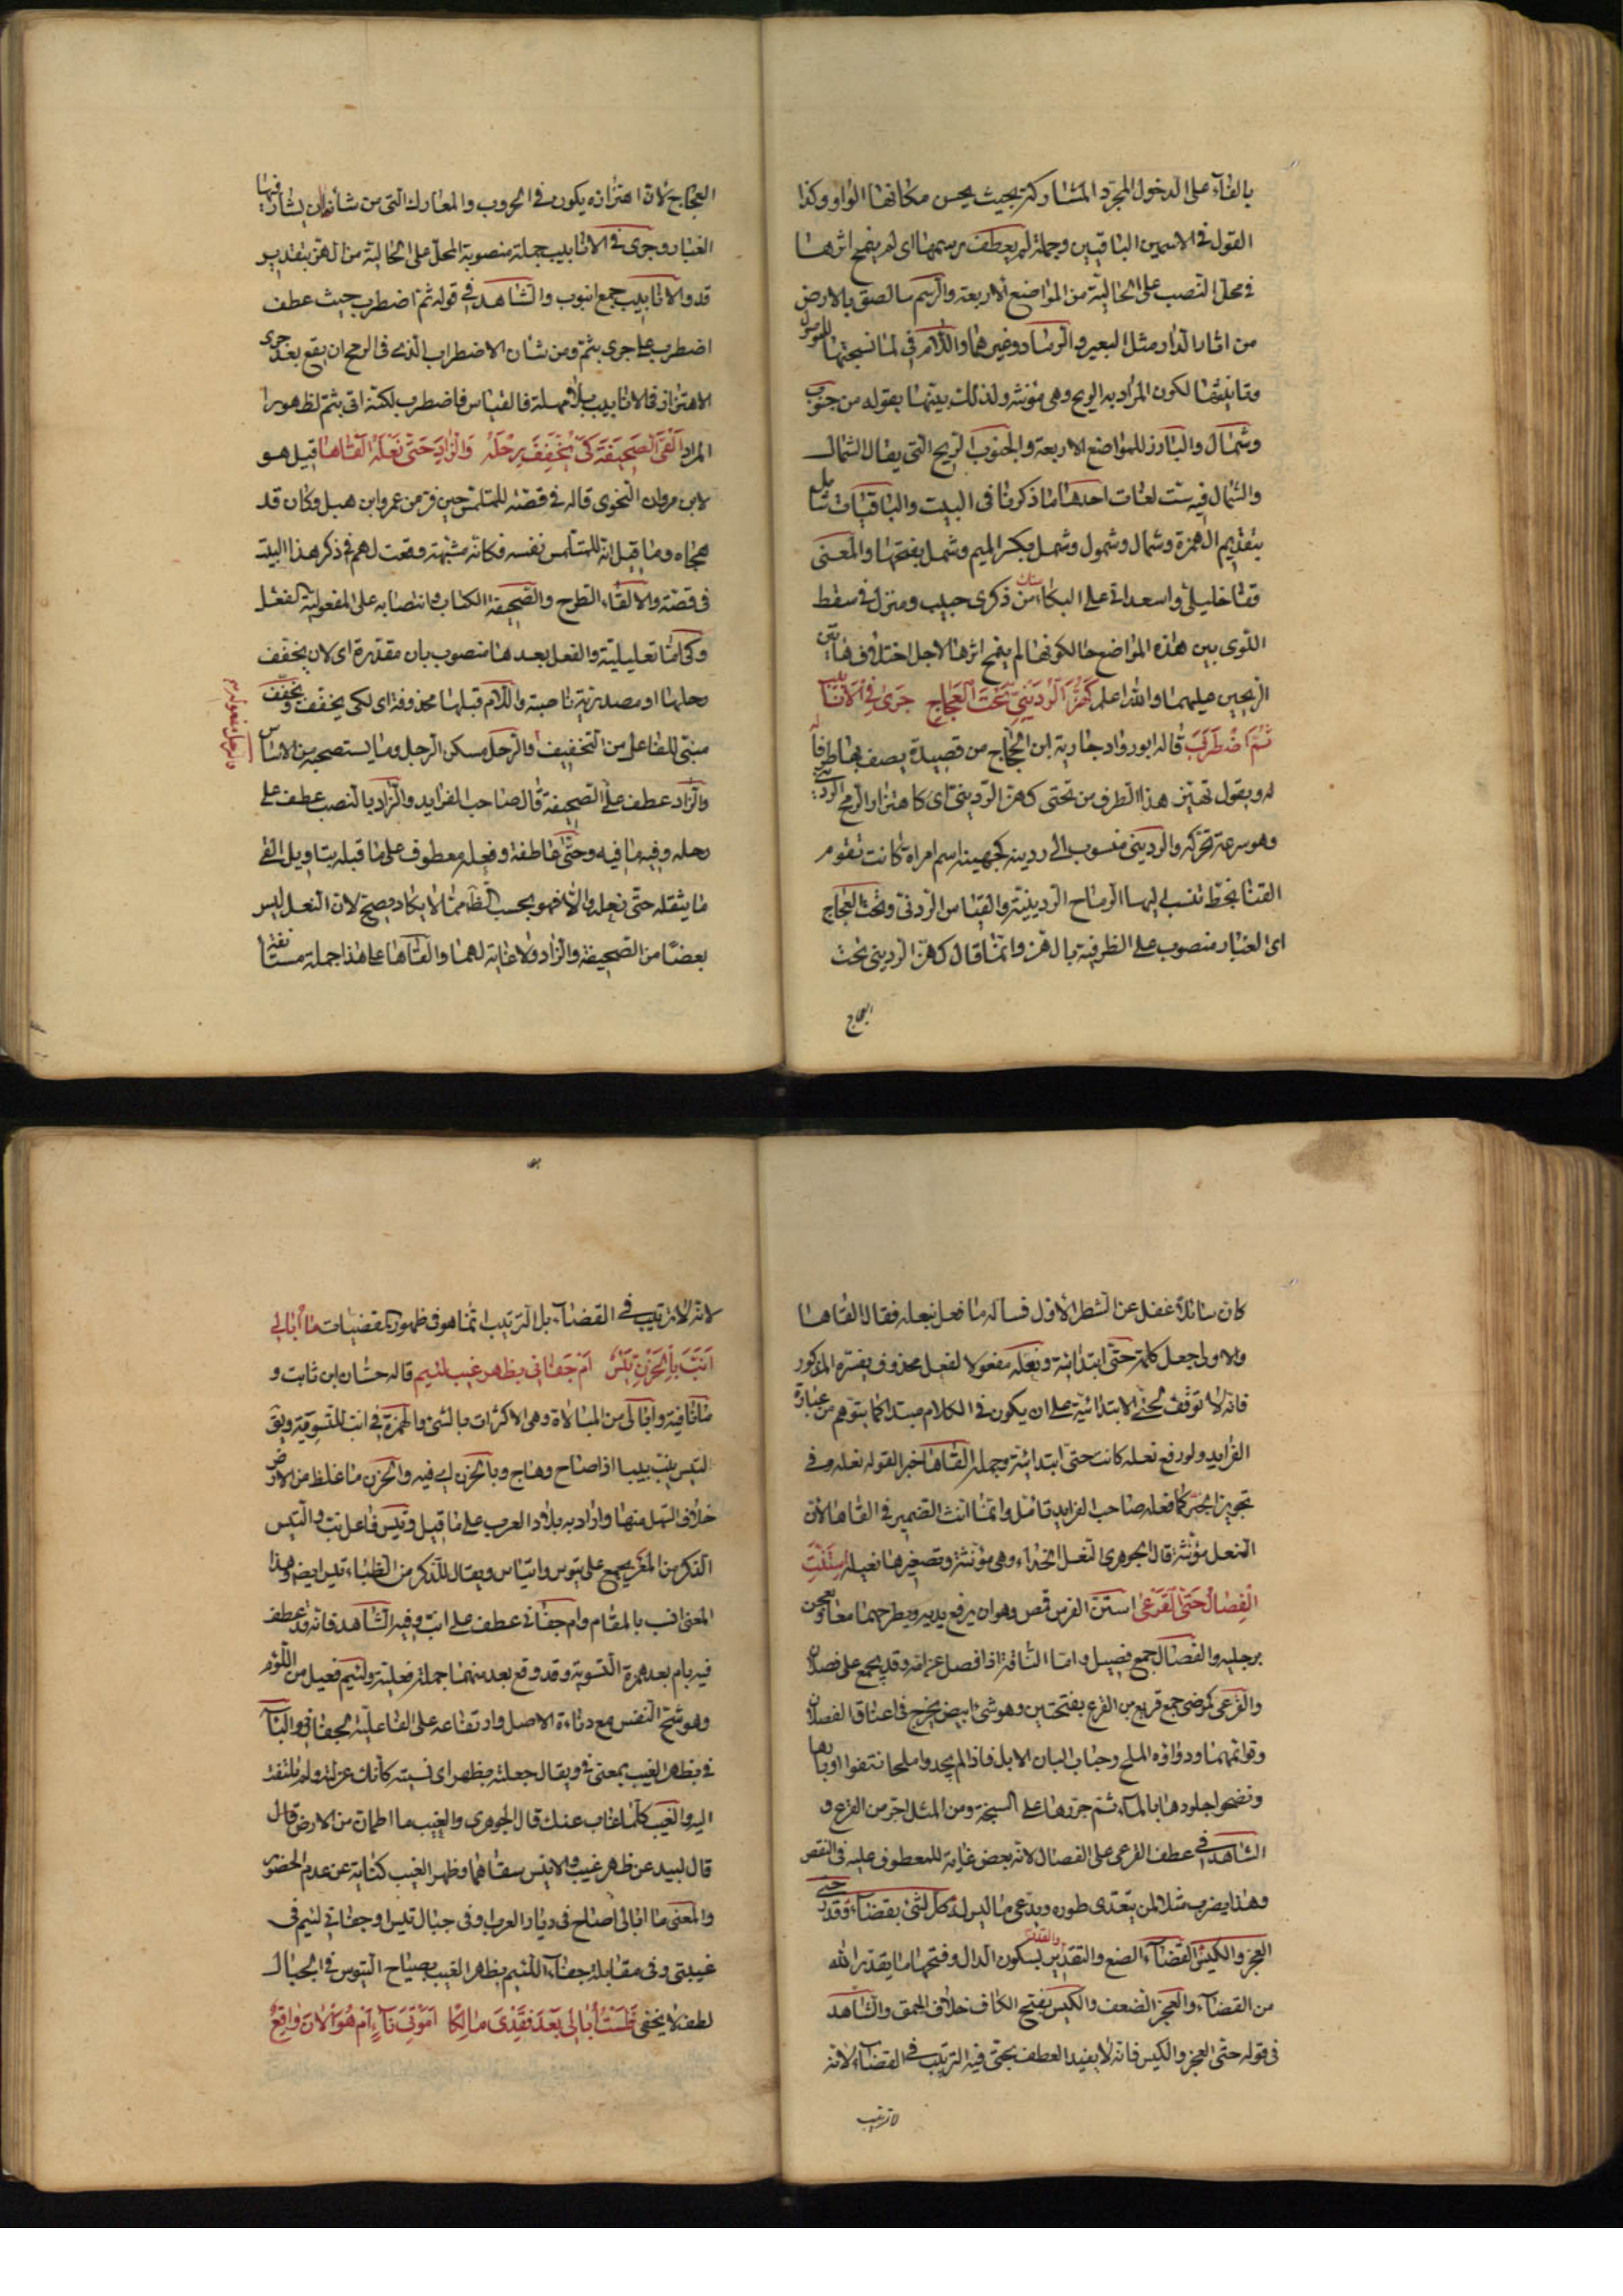 بالفاء على الدخول المجرد المشاركة بحيث يحسن مكانها الواو وكذا
القول في الاسمين الباقيين وجملة لم يعطف رسمها اى لم ينمح اثرها
في محل النصب على الحالية من المواضع الاربعة والرسم ما لصق بالارض
من اثار الدار مثل البعير والرماد وغيرهما واللام في لما نسجتها للموصول
وتانيثها لكون المراد به الريح وهى مؤنثة ولذلك بينها بقوله من جنوب
وشمال والبارز للمواضع الاربعة والجنوب الريح التي يقال الشمال
والشمال فيه ست لغات احدها ما ذكرنا في البيت والباقيات شامل
بتقديم الهمزة وشمال وشمول وشمل بكسر الميم وشمل بفتحها والمعنى
قفا خليلي واسعداني على البكاء من ذكرى حبيب ومنزل في سقط
اللوى بين هذه المواضع حالكونها لم ينمح اثرها لاجل اختلاف هاتين
الريحين عليهما والله اعلم كهز الرديني تحت العجاج جرى في الانابيب
ثم اضطرب قاله ابو رواد جارية ابن الحجاج من قصيدة يصف بها طرفا
له ويقول تهتز هذا الطرف من تحتى كهز الرديني اى كاهتزاز الرمح الرديني
وهو سرعة تحركه والرديني منسوب الى ردينة كجهينة اسم امراة كانت تقوم
القنا بخط تنسب اليها الرماح الردينية والقياس الردني وتحت العجاج
اى الغبار منصوب على الظرفية بالهز وانما قال كهز الرديني تحت
العجاج
العجاج لان اهتزازه يكون في الحروب والمعارك التي من شانها ان يثار فيها
الغبار وجرى في الانابيب جملة منصوبة المحل على الحالية من الهز بتقدير
قد والانابيب جمع انبوب والشاهد في قوله ثم اضطرب حيث عطف
اضطرب على جرى بثم ومن شان الاضطراب الذي في الرمح ان يقع بعد جرى
الاهتزاز في الانابيب بلا مهلة فالقياس فاضطرب لكنه اتى بثم لظهور
المراد القى الصحيفة كى يخفف رحله والزاد حتى نعله القاها قيل هو
لابن مروان النحوى قاله في قصة للمتلمس حين فر من عمرو ابن هبل وكان قد
هجاه وما قيل انه للمتلمس نفسه فكانه مشبهة وقعت لهم في ذكر هذا البيت
في قصته والالقاء الطرح والصحيفة الكتاب وانتصابه على المفعولية لفعل
وكى اما تعليلية والفعل بعدها منصوب بان مقدرة اى لان يخفف
رحلها او مصدرية ناصبة واللام قبلها محذوفة اى لكى يخفف ويخفف
مبنى للفاعل من التخفيف والرحل مسكن الرجل وما يستصحبه من الاثاث
والزاد عطف على الصحيفة قال صاحب الفرايد والزاد بالنصب عطف على
رحله وفيه ما فيه وحتى عاطفة وفعله معطوف على ما قبله بتاويل القى
ما يثقله حتى نعله والا فهو بحسب الظاهر مما لا يكاد يصح لان النعل ليس
بعضا من الصحيفة والزاد ولا غاية لهما والقاها على هذا جملة مستانفة
كان سائلا غفل عن الشطر الاول فساله ما فعل بنعله فقال القاها
والاولى جعل كلمة حتى ابتدائية ونعله مفعولا لفعل محذوف يفسره المذكور
فانه لا توقف لحتى الابتدائية على ان يكون في الكلام مبتدا كما يتوهم من عبارة
الفرايد ولو رفع نعله كانت حتى ابتدائية وجملة القاها خبرا لقوله نعله وفي
تجويز الجر كما فعله صاحب الفرايد تامل وانما انث الضمير في القاها لان
النعل مؤنثة قال الجوهرى النعل الحذاء وهي مؤنثة وتصغيرها نعيلة استنت
الفصال حتى القرعى استن الفرس قمص وهو ان يرفع يديه ويطرحهما معا ويعجن
برجليه والفصال جمع فصيل وامنا الناقة اذا فصل عن امه وقد يجمع على فصلان
والقرعى كمرضى جمع قريع من القرع بفتحتين وهو شئ ابيض يخرج في اعناق الفصلان
وقوائمها ودواؤه الملح وجباب البان الابل فاذا لم يجدوا ملحا نتفوا اوبارها
ونضحوا جلودها بالماء ثم جروها على السبخة ومن المثل احر من القرع و
الشاهد في عطف القرعى على الفصال لانه بعض غاية للمعطوف عليه في النقص
وهذا يضرب مثلا لمن يتعدى طوره ويدعى ما ليس له كل شئ بقضاء وقدر حتى
العجز والكيس القضاء الصنع والتقدير والقدر بسكون الدال وفتحها ما يقدر الله
من القضاء والعجز الضعف والكيس بفتح الكاف خلاف الحمق والشاهد
في قوله حتى العجز والكيس فانه لا يفيد العطف بحتى فيه الترتيب في القضاء لانه
لا ترتيب
لانه لا ترتيب في القضاء بل الترتيب انما هو في ظهور المقضيات ما ابالى
انب بالحزن تيس ام جفانى بظهر غيب لئيم قاله حسان ابن ثابت و
ما نافية وابالى من المبالاة وهي الاكتراث بالشئ والهمزة في انب للتسوية ونب
التيس ينب نبيبا اذا صاح وهاج وبالحزن اى فيه والحزن ما غلظ من الارض
خلاف السهل منها واراد به بلاد العرب على ما قيل وتيس فاعل نب والتيس
الذكر من المعز يجمع على تيوس واتياس ويقال للذكر من الظباء تيس ايضا وهذا
المعنى انسب بالمقام وام جفانى عطف على انب وفيه الشاهد فانه قد عطف
فيه بام بعد همزة التسوية وقد وقع بعد منهما جملة فعلية ولئيم فعيل من اللؤم
وهو شح النفس مع دناءة الاصل وارتفاعه على الفاعلية لجفانى والباء
في بظهر الغيب بمعنى في ويقال جعلته بظهر اى نسيته كانك عزلته ولم تلتفت
اليه والغيب كلما غاب عنك قال الجوهرى والغيب ما اطمان من الارض قال
قال لبيد عن ظهر غيب والانيس سقامها وظهر الغيب كناية عن عدم الحضور
والمعنى ما ابالى اصاح في ديار العرب وفي جبال تيس او جفانى لئيم في
غيبتى وفي مقابلة جفاء اللئيم بظهر الغيب بصياح التيوس في الجبال
لطف لا يخفى ولست ابالى بعد فقدى مالكا اموتى ناء ام هو الان واقع